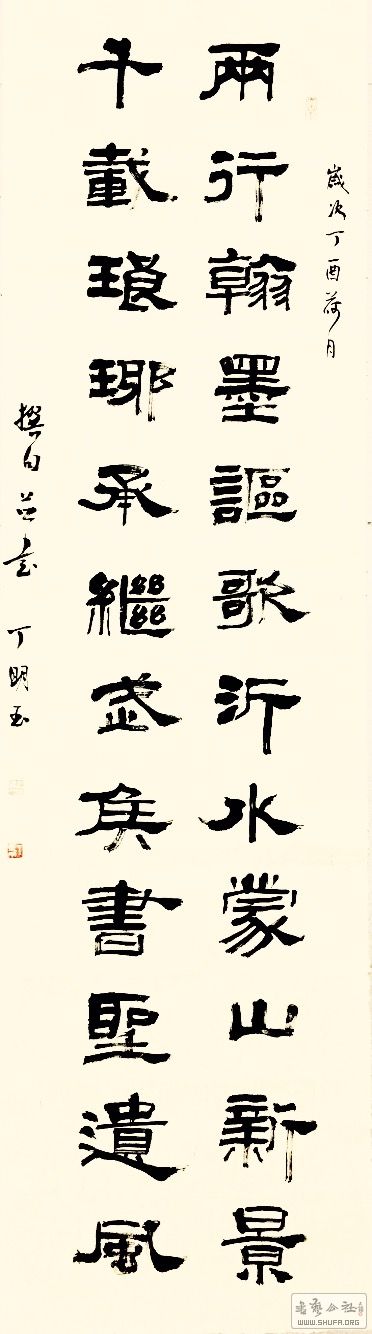 歲次丁酉荷月
兩行翰墨謳歌沂水蒙山新景
千載琅琊承繼武侯書聖遺風
撰句並書 丁明玉
書藝公社
WWW.SHUFA.ORG